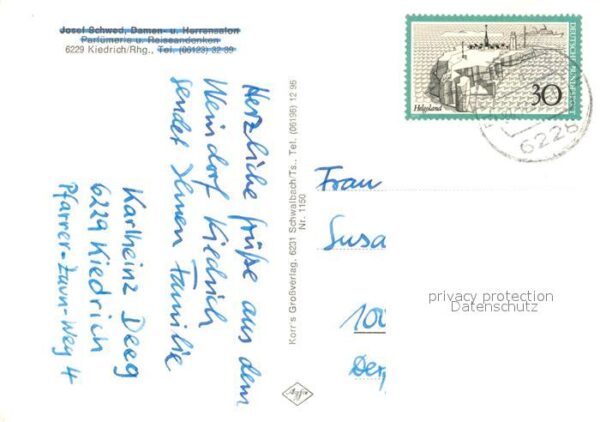 Josef Schwed, Damen- u. Herrensalon
Parfümerie u. Reiseandenken
6229 Kiedrich/Rhg., Tel. (06123) 32 39
Herzliche Grüße aus dem
Weindorf Kiedrich
sendet Ihnen Familie
Karlheinz Deeg
6229 Kiedrich
Pfarrer-Zaun-Weg 4
Korr's Großverlag, 6231 Schwalbach/Ts., Tel. (06196) 12 96
Nr. 1150
Agfa
Helgoland
30
DEUTSCHE BUNDESPOST
622
Frau
Susa
100
privacy protection
Datenschutz